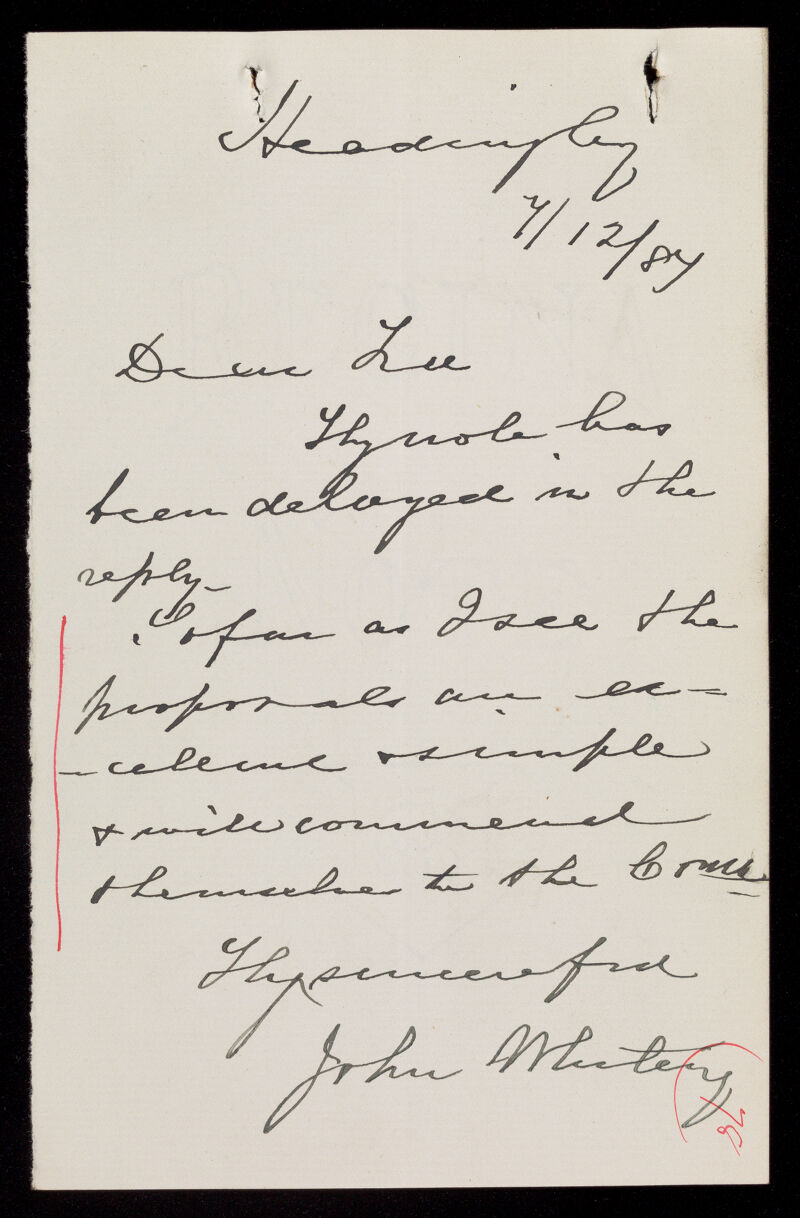 Headingley
7/12/87
Dear
Thy note has
been delayed in the
reply -
So far as I see the
proposals are ex-
-cellent & simple
& will commend
themselves to the Comee
Thy sincere frd
John Whiting